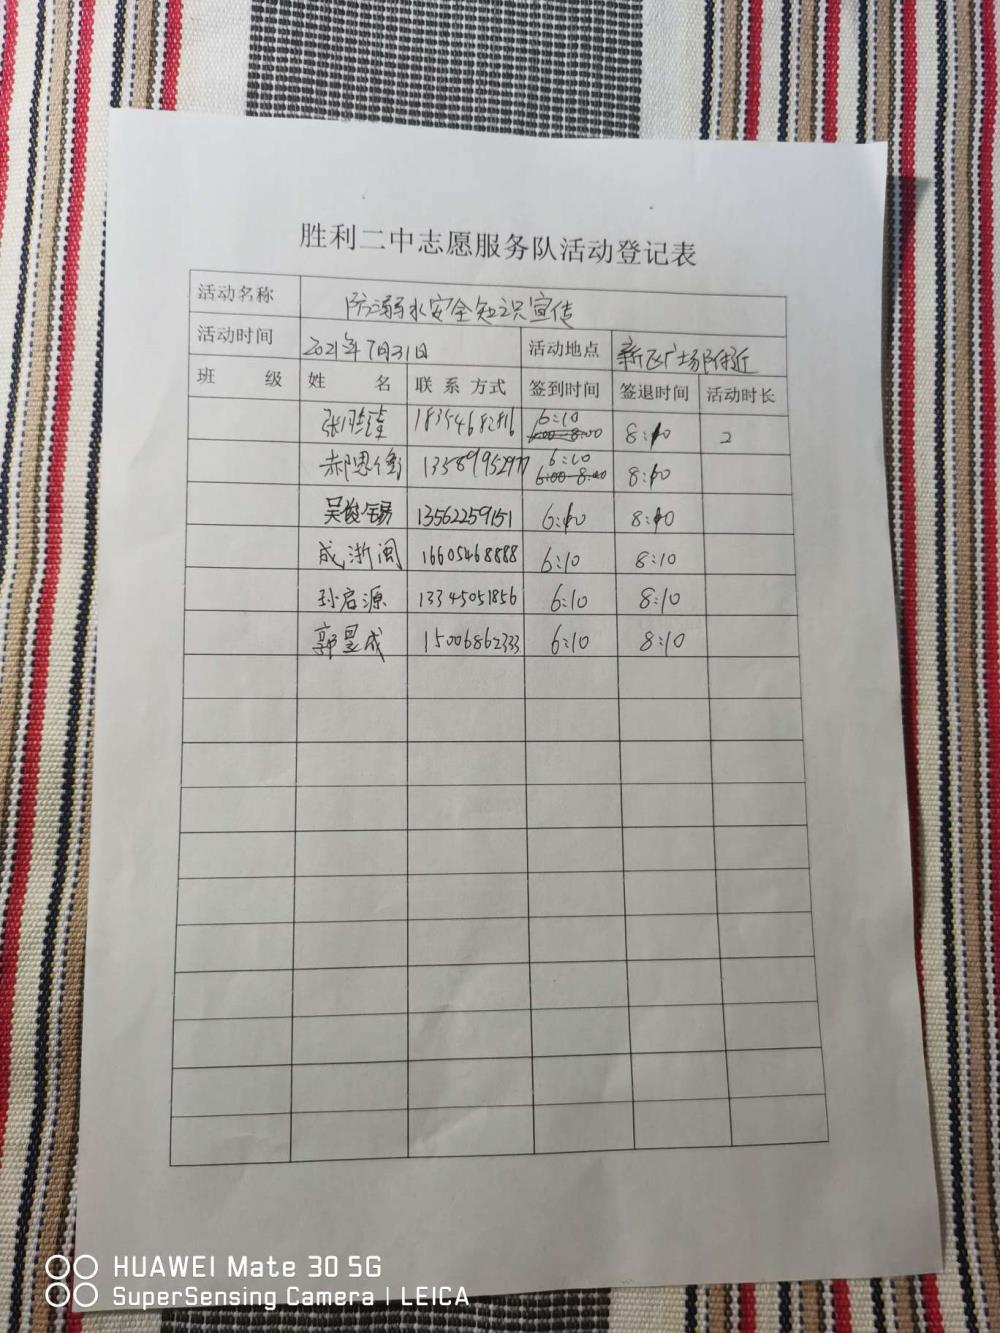 胜利二中志愿服务队活动登记表
活动名称 防溺水安全知识宣传
活动时间 2021年7月31日 活动地点 新区广场附近
班 级 姓 名 联系方式 签到时间 签退时间 活动时长
张 18354682816 6:10 8:10 2
郝思 6:10 8:10
吴 锡 13562259151 6:10 8:10
成浙闽 16605468888 6:10 8:10
孙启源 13345051856 6:10 8:10
郭昱成 15006862333 6:10 8:10
HUAWEI Mate 30 5G
SuperSensing Camera | LEICA